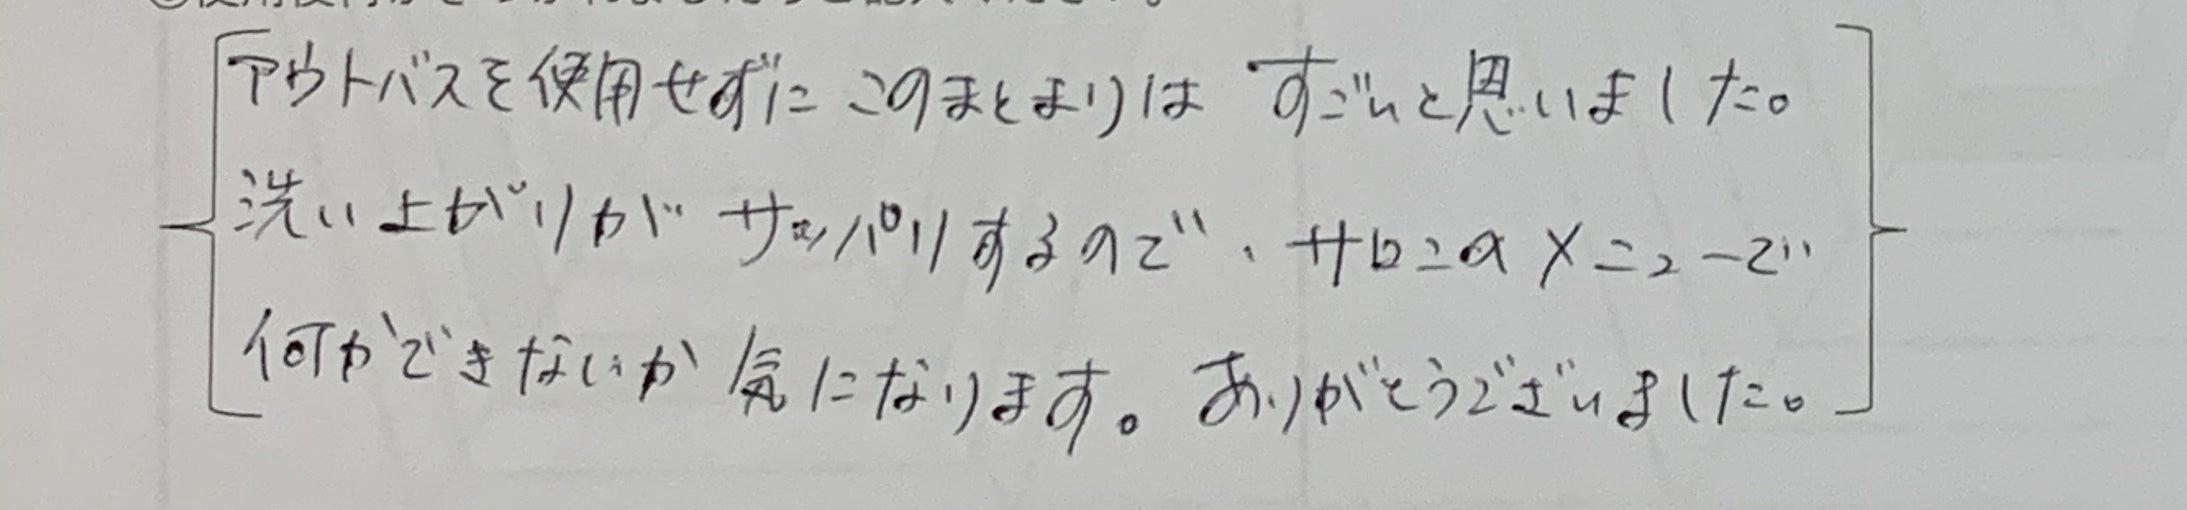 アウトバスを使用せずにこのまとまりは すごいと思いました。
洗い上がりが サッパリするので、サロンのメニューで
何かできないか 気になります。ありがとうございました。